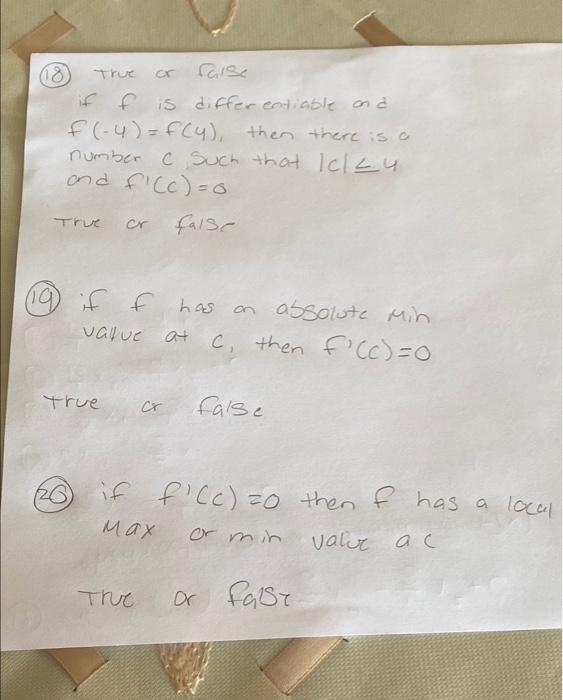 (18) True or false
if f is differentiable and
f(-4) = f(4), then there is a
number c, such that |c| ≤ 4
and f'(c) = 0
True or false
(19) if f has an absolute min
value at c, then f'(c) = 0
true or false
(20) if f'(c) = 0 then f has a local
Max or min value a c
True or false